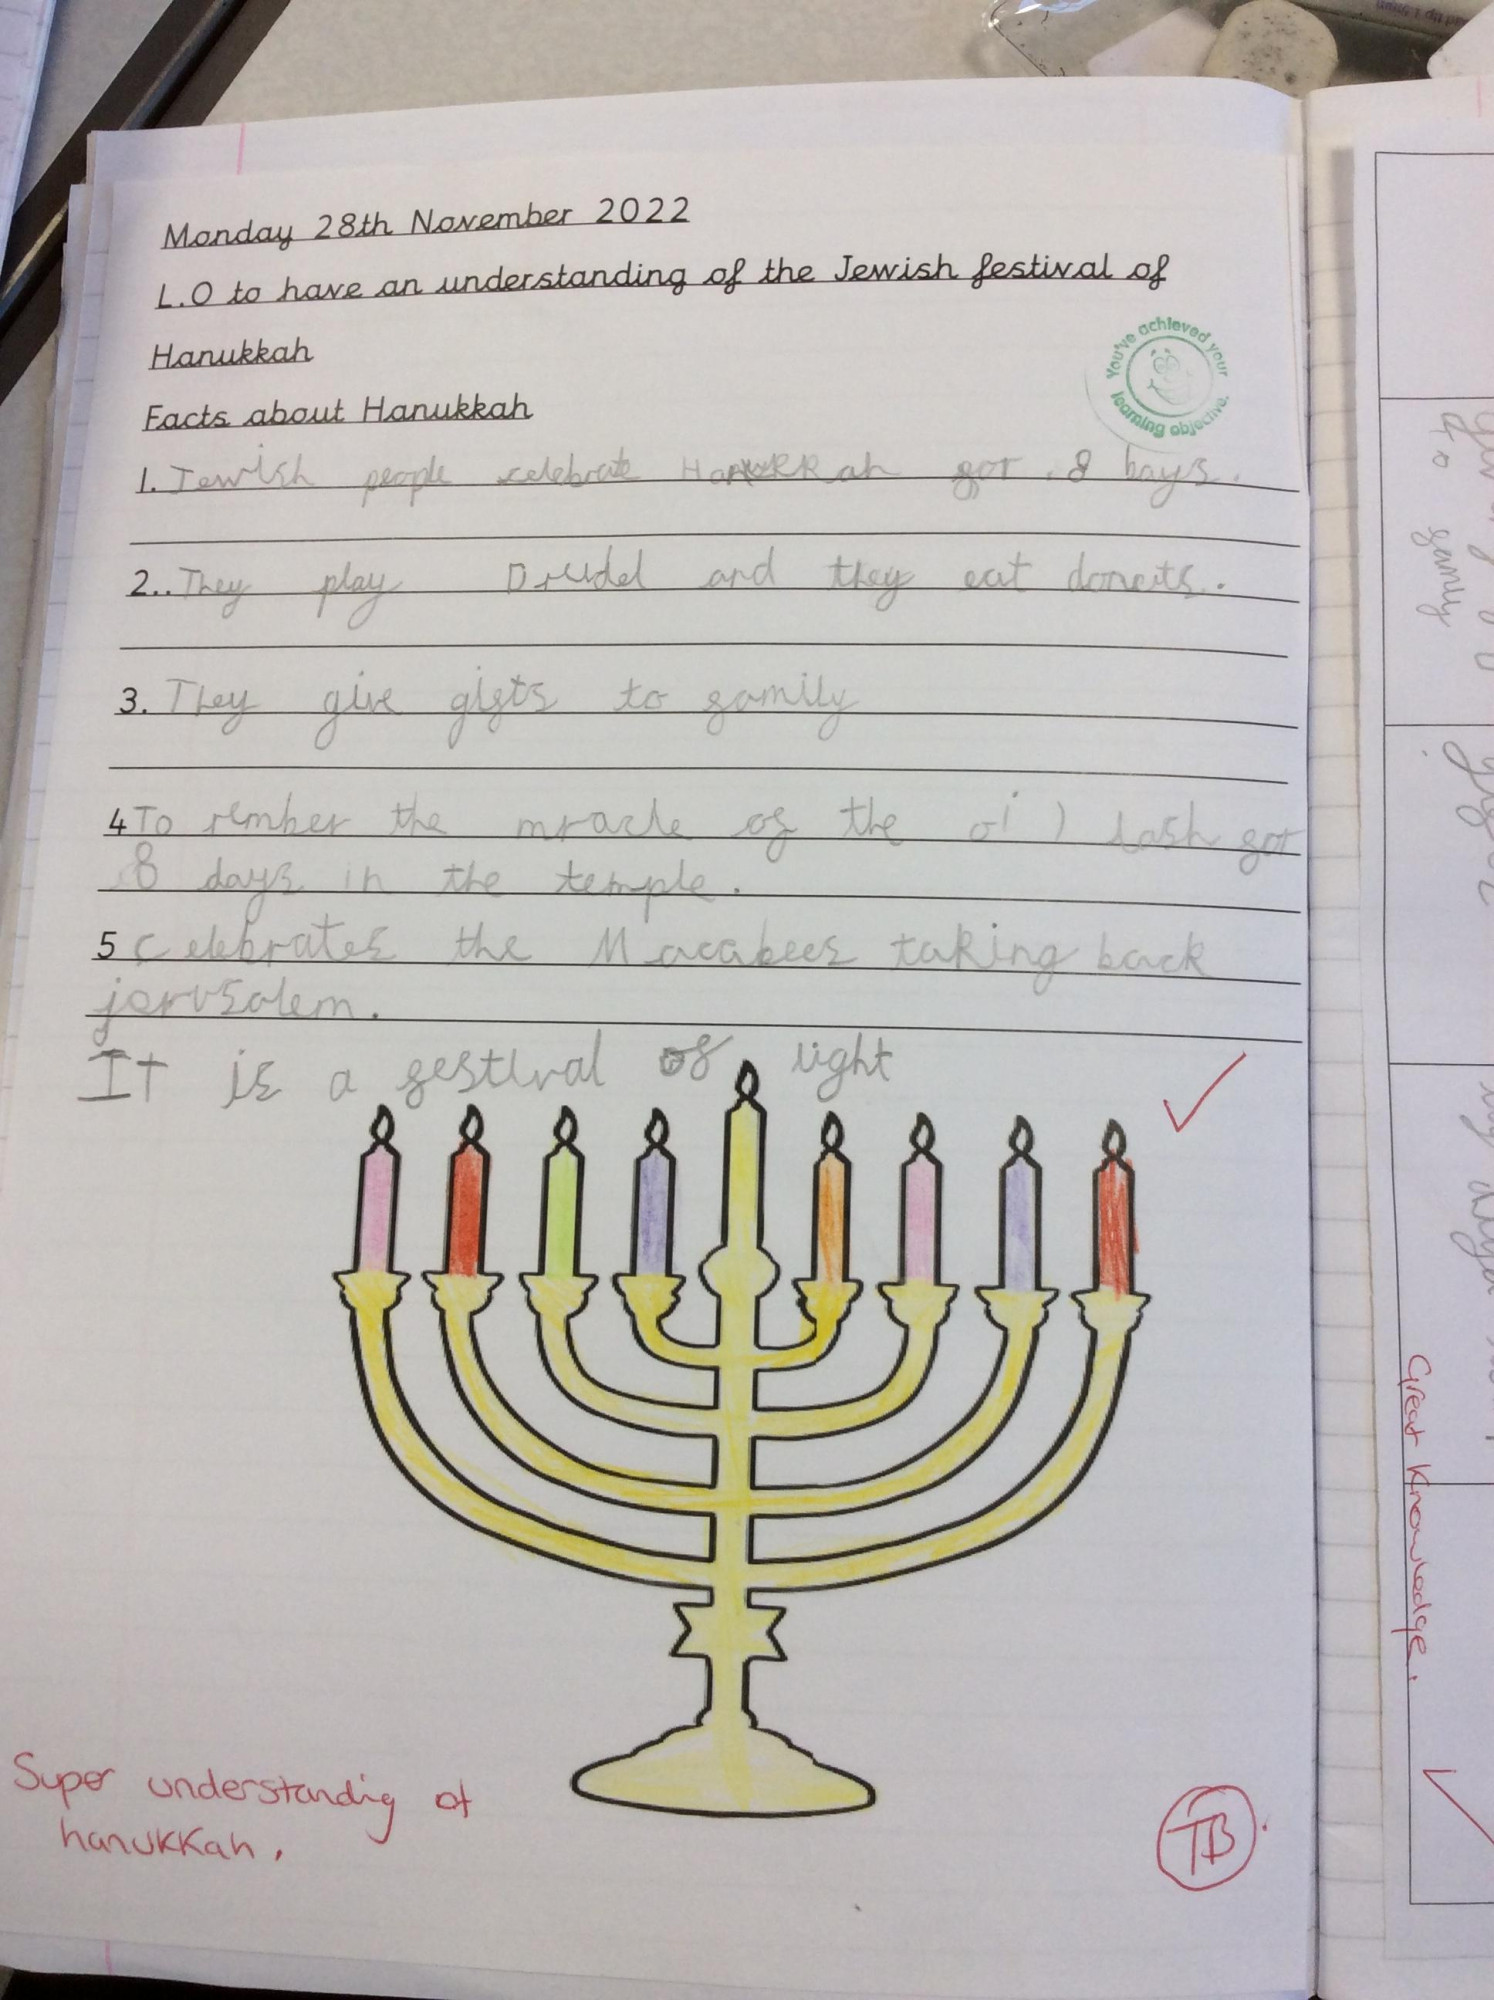 Monday 28th November 2022
L.O to have an understanding of the Jewish festival of
Hanukkah
Facts about Hanukkah
You've achieved your learning objective.
1. Jewish people celebrate Hanukkah for 8 bays.
2.. They play Drudel and they eat donuts.
3. They give gifts to family
4 To rember the mracle of the oil lash for
8 days in the temple.
5 celebrates the Macabees taking back
jerusalem.
It is a festival of light
Super understandig of
hanukkah.
TB
Great Knowledge.